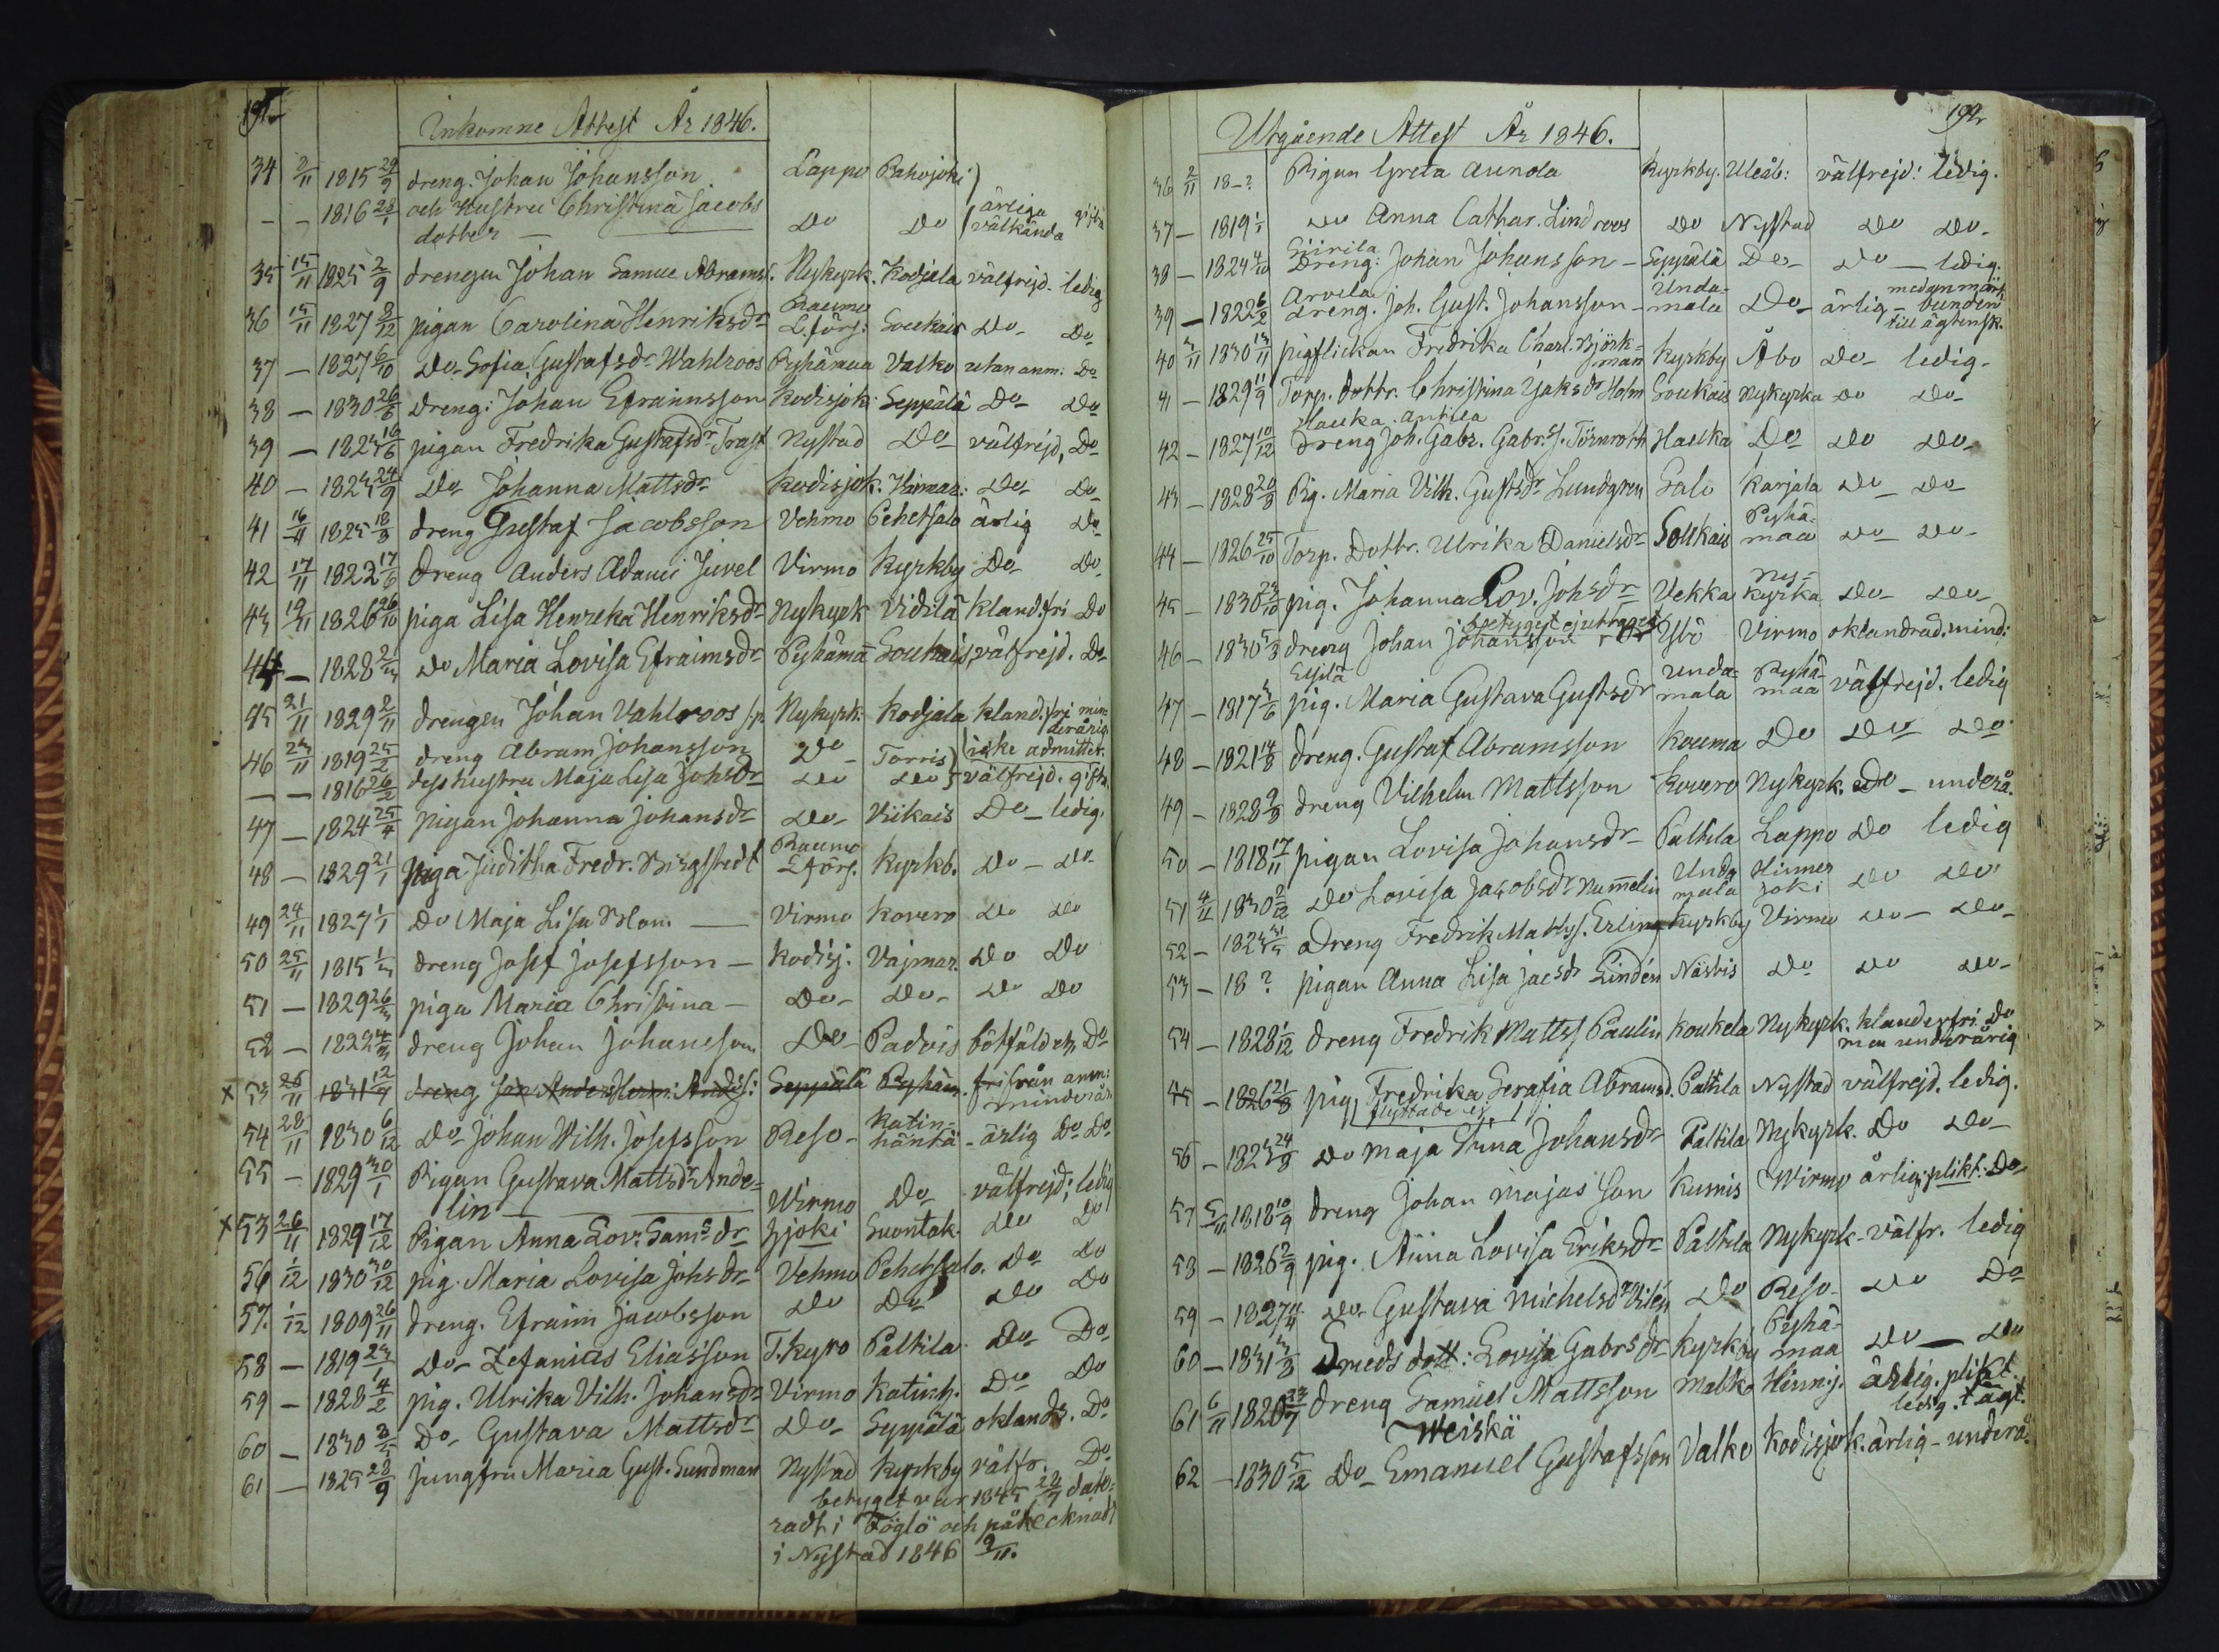 191.
Inkomne Attest År 1846.
34 2/11 1815 29/9 dreng. Johan Johansson Lappo Pahojoki
- - 1816 28/1 och Hustru Christina Jacobs ärliga
dotter - Do Do välkända gifta
35 15/11 1825 2/9 drengen Johan Samuel Abrams. Nykyrk. Kodjala välfrejd. ledig
Raumo
36 15/11 1827 8/12 pigan Carolina Henriksdr L.förs. Soukais Do- Do
37 - 1827 6/10 Do- Sofia Gustafsdr Wahlroos Pyhämaa Valko utan anm: Do
38 - 1830 26/5 dreng: Johan Efraimsson Kodisjok: Seppälä Do- Do
39 - 1823 16/6 pigan Fredrika Gustafsdr Trast Nystad Do välfrejd, Do
40 - 1823 24/9 Do Johanna Mattsdr Kodisjok. Himar: Do- Do-
41 16/11 1825 18/8 dreng Gustaf Jacobsson Vehmo Pehetsalo ärlig Do
42 17/11 1822 17/6 dreng Anders Adami Juvel Virmo Kyrkby Do- Do
43 19/11 1826 26/10 piga Lisa Henreka Henriksdr Nykyrk Vidilä kland.fri Do
44 - 1828 21/3 Do Maria Lovisa Efraimsdr Pyhäma Soukais välfrejd. Do
45 21/11 1829 2/11 drengen Johan Vahlroos Nykyrk: Kodjala kland.fri min
derårig
46 23/11 1819 25/2 dreng Abram Johansson Do - Torris (icke admitter.
- - 1816 26/2 dess hustru Maja Lisa Johsdr Do Do välfrejd. gifta.
47 - 1824 25/4 pigan Johanna Johansdr Do- Viikais Do- ledig.
Raumo
48 - 1829 21/1 piga Juditha Fredr. Bisgstedt Lförs. Kyrkb. Do- Do
49 24/11 1827 1/1 Do Maja Lisa Blom - Virmo Kovero Do Do
50 25/11 1815 1/3 dreng Josef Josefsson - Kodisj. Vajmar. Do Do
51 - 1829 26/3 piga Maria Christina - Do- Do- Do Do
52 - 1822 4/3 dreng Johan Johansson Do- Padvis bötfäld etc Do
x 53 25/11 1831 12/4 dreng Jon Anders Herm: Ands: Seppälä Pyhäm. fri från anm:
minderår.
54 28/11 1830 6/12 Do Johan Wilh. Josefsson Reso- Katin-
häntä - ärlig Do Do
55 - 1829 30/1 Pigan Gustava Mattsdr Ande=
lin Wirmo Do välfrejd; ledig
x 53 26/11 1829 17/12 Pigan Anna Lov: Sams dr Hjoki Suontak. Do Do
56 1/12 1830 30/12 pig. Maria Lovisa Johsdr Vehmo Pehetsalo. Do Do
57. 1/12 1809 26/11 dreng. Efraim Jacobsson Do Do Do Do
58 - 1819 23/1 Do- Zefanias Eliasson T.kyro Paltila Do- Do-
59 - 1828 4/2 pig. Ulrika Vilh. Johansdr Virmo Katinh. Do Do
60 - 1830 3/5 Do- Gustava Mattsdr Do- Seppälä oklandr. Do
61 - 1825 28/9 jungfru Maria Gust. Sundman Nystad Kyrkby välfr. Do
betyget var 1845 22/7 date-
radt i Föglö och påtecknadt
i Nystad 1846 9/11.
192
Utgående Attest År 1846.
36 2/11 18-? Pigan Greta Aunola Kyrkby. Uleåb: välfrejd: ledig.
37 - 1819 1/1 Do Anna Cathar. Lindroos Do Nystad Do Do-
Siirila
38 - 1824 4/10 Dreng: Johan Johansson - Seppälä Do- Do - ledig.
Arvela Unda- medan märk
39 - 1822 6/2 dreng. Joh. Gust. Johansson - mala Do- ärlig - bunden
till ägtensk.
40 3/11 1830 13/11 pigflickan Fredrika Charl. Björk-
man Kyrkby Åbo Do- ledig-
41 - 1829 11/9 Torp. Dottr. Christina Jaksdr Holm Soukais Nykyrka Do Do-
Hauka. Antila
42 - 1827 10/12 Dreng Joh. Gabr. Gabr.s. Törnroth Hauka Do Do Do-
43 - 1828 20/8 Pig. Maria Vilh. Gustsdr Lundgren Salo Karjala Do- Do-
44 - 1826 25/10 Torp. Dottr. Ulrika Danielsdr Soukais Pyhä-
maa Do- Do-
45 - 1830 23/10 pig. Johanna Lov. Johsdr Vekka Ny-
kyrka Do- Do-
betyget ej uttaget
46 - 1830 5/8 dreng Johan Johansson Ybö Virmo oklandrad. mind:
Eylä
47 - 1817 3/6 pig. Maria Gustava Gustsdr Unda-
mala Pyhä-
maa välfrejd. ledig
48 - 1821 14/8 dreng. Gustaf Abramsson Kouma Do Do Do
49 - 1828 9/8 dreng Vilhelm Mattsson Kovero Nykyrk. Do - underå.
50 - 1818 17/11 pigan Lovisa Johansdr Paltila Lappo Do ledig
51 4/11 1830 2/12 Do Lovisa Jacobsdr Numelin Unda
mala Hinner
joki Do Do
52 - 1823 31/5 Dreng Fredrik Matts s. Erling Kyrkby Virmo Do- Do-
53 - 18 ? pigan Anna Lisa Jacsdr Lindén Närvis Do Do Do-
54 - 1828 1/12 Dreng Fredrik Mattss Paulin Koukela Nykyrk. klanderfri Do
men underårig
55 - 1826 21/8 pig. Fredrika Serafia Abramsd. Paltila Nystad välfrejd. ledig.
flyttade ej
56 - 1823 24/8 Do Maja Stina Johansdr Paltila Nykyrk. Do Do-
57 5/11 1818 10/9 dreng Johan Majas Son Kumis Wirmo ärlig; plikt. Do-
58 - 1826 2/9 pig. Anna Lovisa Eriksdr Paltila Nykyrk- välfr. ledig
59 - 1827 4/4 Do- Gustava Michelsdr Vilén Do Reso- Do Do
60 - 1831 3/8 Smeds dott: Lovisa Gabrsdr Kyrkby Pyhä-
maa Do- Do
61 6/11 1820 23/7 dreng Samuel Mattsson Malko Hinn.j. ärlig. plikt.
Weiskä ledig. t. ägt.
62 - 1830 5/12 Do- Emanuel Gustafsson Valko Kodisjok. ärlig - underå.